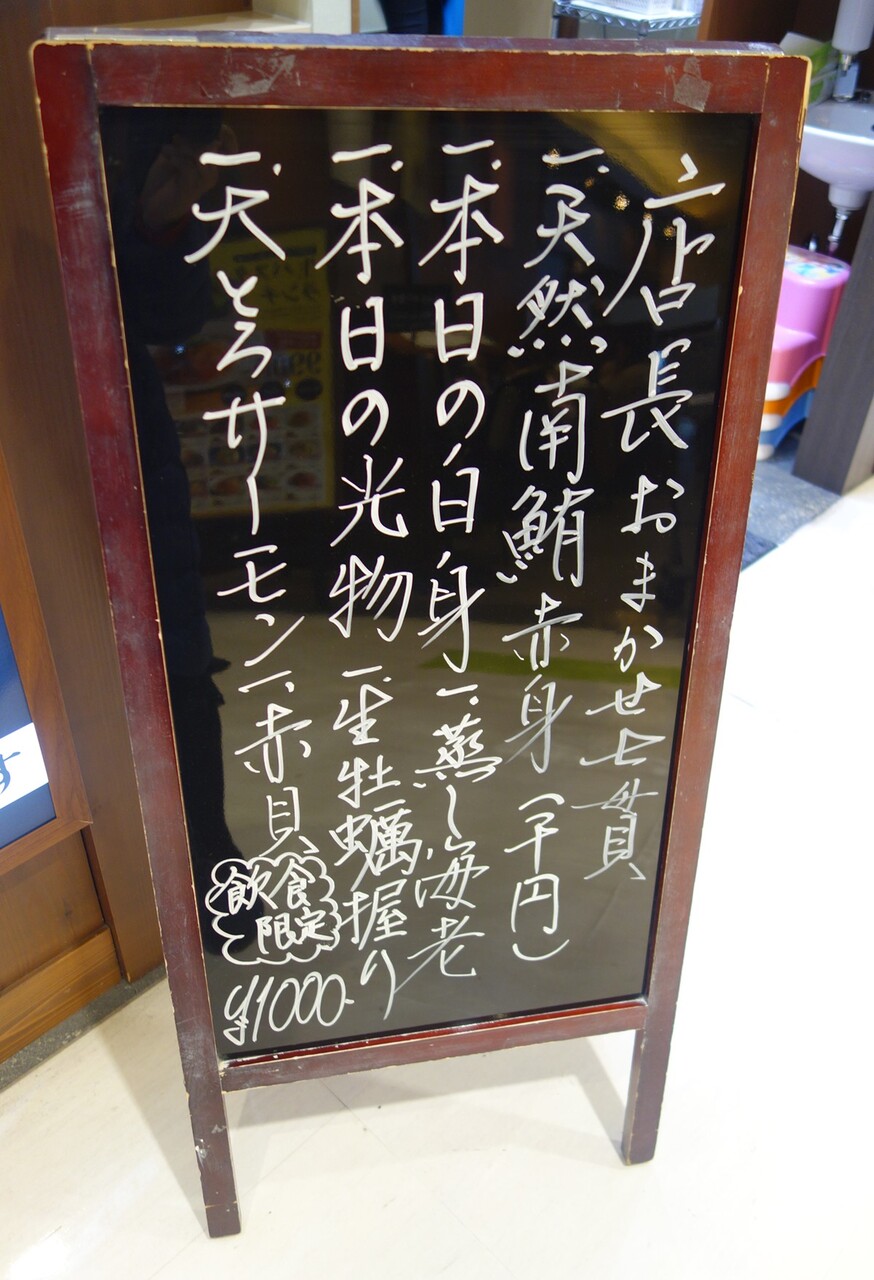 店長おまかせ七貫
一、天然南鮪赤身(千円)
一、本日の白身 一、蒸し海老
一、本日の光物 一、生牡蠣握り
一、大とろサーモン 一、赤貝
飲食
限定
¥1000-
す